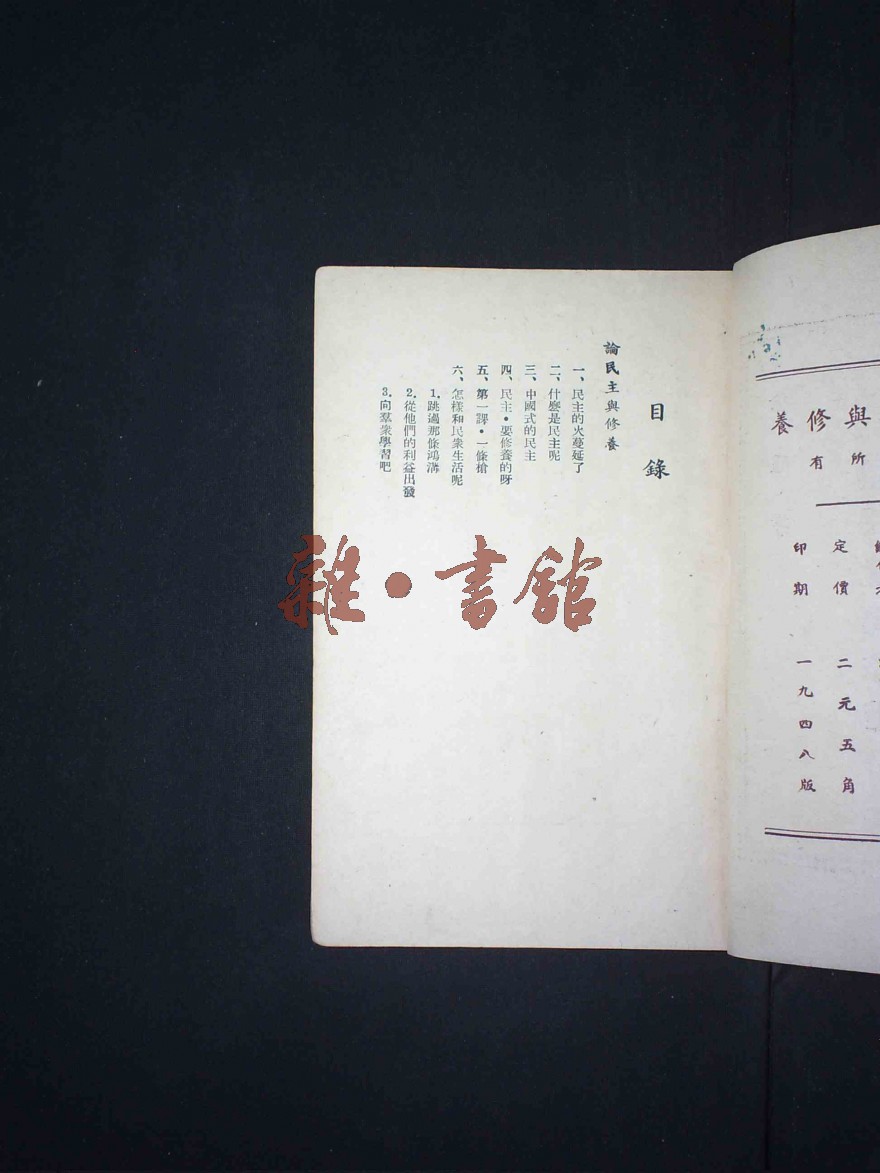 與修養
所有
定價 二元五角
印期 一九四八版
目錄
論民主與修養
一、民主的火蔓延了
二、什麼是民主呢
三、中國式的民主
四、民主・要修養的呀
五、第一課・一條槍
六、怎樣和民衆生活呢
1.跳過那條鴻溝
2.從他們的利益出發
3.向羣衆學習吧
雜・書館